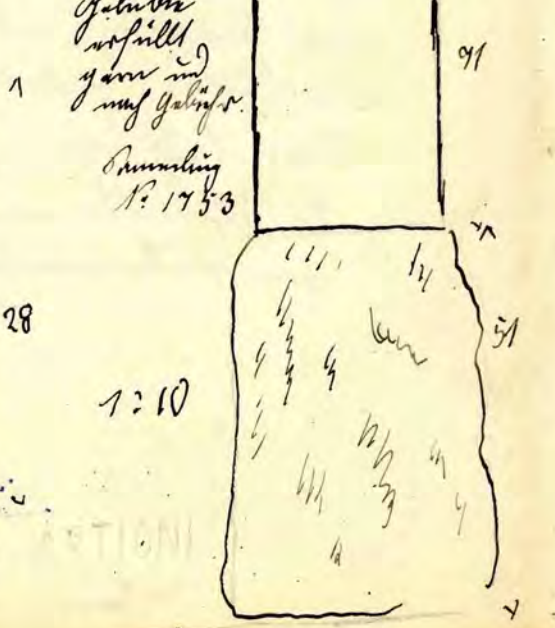 Gelübde
erfüllt
gern und
nach Gebühr.
Sammlung
No 1753
91
51
28
1:10